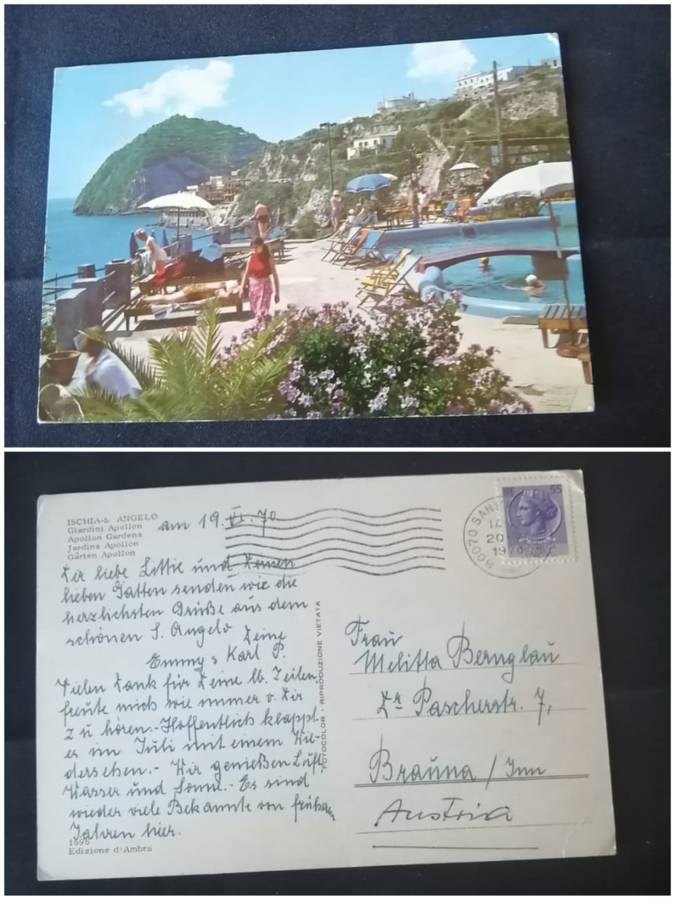 ISCHIA-S. ANGELO
Giardini Apollon
Apollon Gardens
Jardins Apollon
Gärten Apollon
am 19. VI. 70
Dir liebe Littie und Deinen
lieben Gatten senden wie die
herzlichsten Grüße aus dem
schönen S. Angelo
Deine
Emmy & Karl P.
Vielen Dank für Deine lb. Zeilen
freute mich wie immer v. Dir
zu hören.- Hoffentlich klappt
er im Juli mit einem Wie-
dersehen.- Wir genießen Luft
Wasser und Sonne.- Es sind
wieder viele Bekannte von frühen
Jahren hier.
1596
Edizione d'Ambra
FOTOCOLOR - RIPRODUZIONE VIETATA
80070 SAN
20
197
55
Frau
Melitta Bernglau
Dr Pascherstr. 7,
Braunau / Inn
Austria